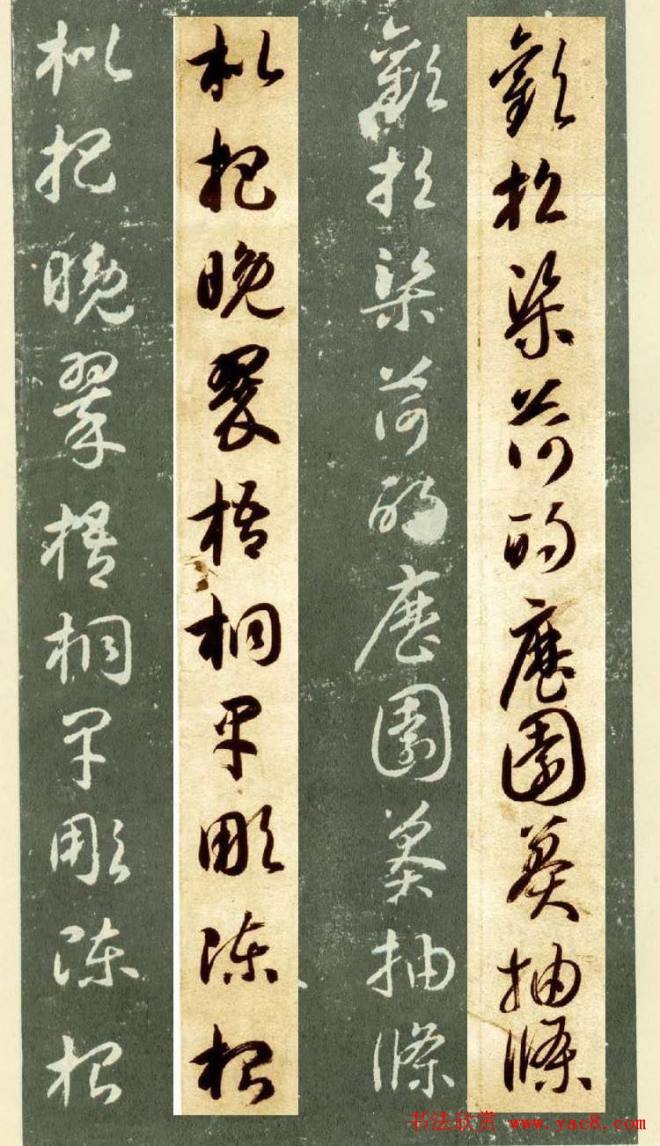 歡招渠荷的歷園莽抽條
歡招渠荷的歷園莽抽條
枇杷晚翠梧桐早彫陳根
枇杷晚翠梧桐早彫陳根
书法欣赏 www.yac8.com